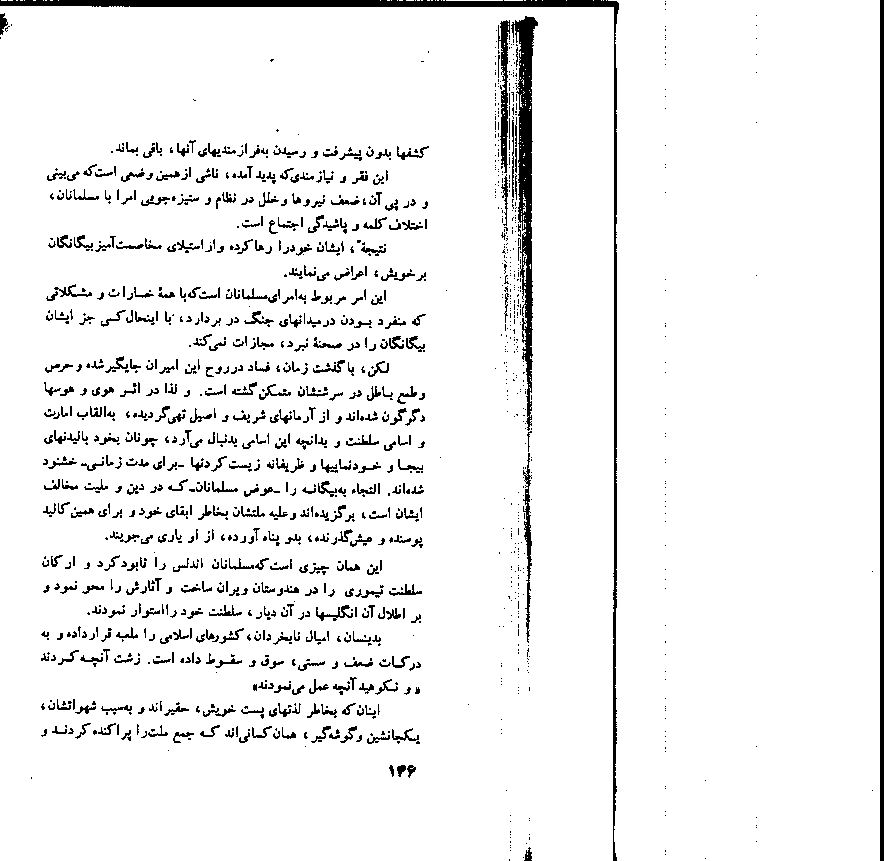 کشفها بدون پیشرفت و رسیدن به‌فرازمندیهای آنها، باقی بماند.
این فقر و نیازمندی‌که پدید آمده، ناشی از همین وضعی است‌که می‌بینی
و در پی آن، ضعف نیروها و خلل در نظام و ستیزه‌جویی امرا با مسلمانان،
اختلاف کلمه و پاشیدگی اجتماع است.
نتیجةً، ایشان خودرا رها کرده و از استیلای مخاصمت‌آمیز بیگانگان
برخویش، اعراض می‌نمایند.
این امر مربوط به‌امرای‌مسلمانان است‌که‌با همهٔ خسارات و مشکلاتی
که منفرد بودن درمیدانهای جنگ در بردارد، با اینحال‌کسی جز ایشان
بیگانگان را در صحنهٔ نبرد، مجازات نمی‌کند.
لکن، با گذشت زمان، فساد درروح این امیران جایگیر شده و حرص
و طمع باطل در سرشتشان متمکن گشته است. و لذا در اثر هوی و هوسها
دگرگون شده‌اند و از آرمانهای شریف و اصیل تهی‌گردیده، به‌القاب امارت
و اسامی سلطنت و بدانچه این اسامی بدنبال می‌آرد، چونان بخود بالیدنهای
بیجا و خودنماییها و ظریفانه زیست کردنها ـبرای مدت زمانی‌ـ خشنود
شده‌اند. التجاء به‌بیگانه را ـعوض مسلمانان‌ـ که در دین و ملیت مخالف
ایشان است، برگزیده‌اند و علیه ملتشان بخاطر ابقای خود و برای همین‌کالبد
پوسنده و عیش‌گذرنده، بدو پناه آورده، از او یاری می‌جویند.
این همان چیزی است‌که‌مسلمانان اندلس را نابود کرد و ارکان
سلطنت تیموری را در هندوستان ویران ساخت و آثارش را محو نمود و
بر اطلال آن انگلیسها در آن دیار، سلطنت خود را استوار نمودند.
بدینسان، امیال نابخردان، کشورهای اسلامی را ملعبه قرارداده و به
درکات ضعف و سستی، سوق و سقوط داده است. زشت آنچه کردند
« و نکوهید آنچه عمل می‌نمودند»
اینان که بخاطر لذتهای پست خویش، حقیراند و به‌سبب شهواتشان،
یکجانشین و گوشه‌گیر، همان کسانی‌اند که جمع ملت‌را پراکنده کردند و
۱۴۶